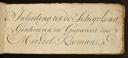 Inleiding tot de Schryfkonst
Geschreven en Gegraveert door
Michiel Romans